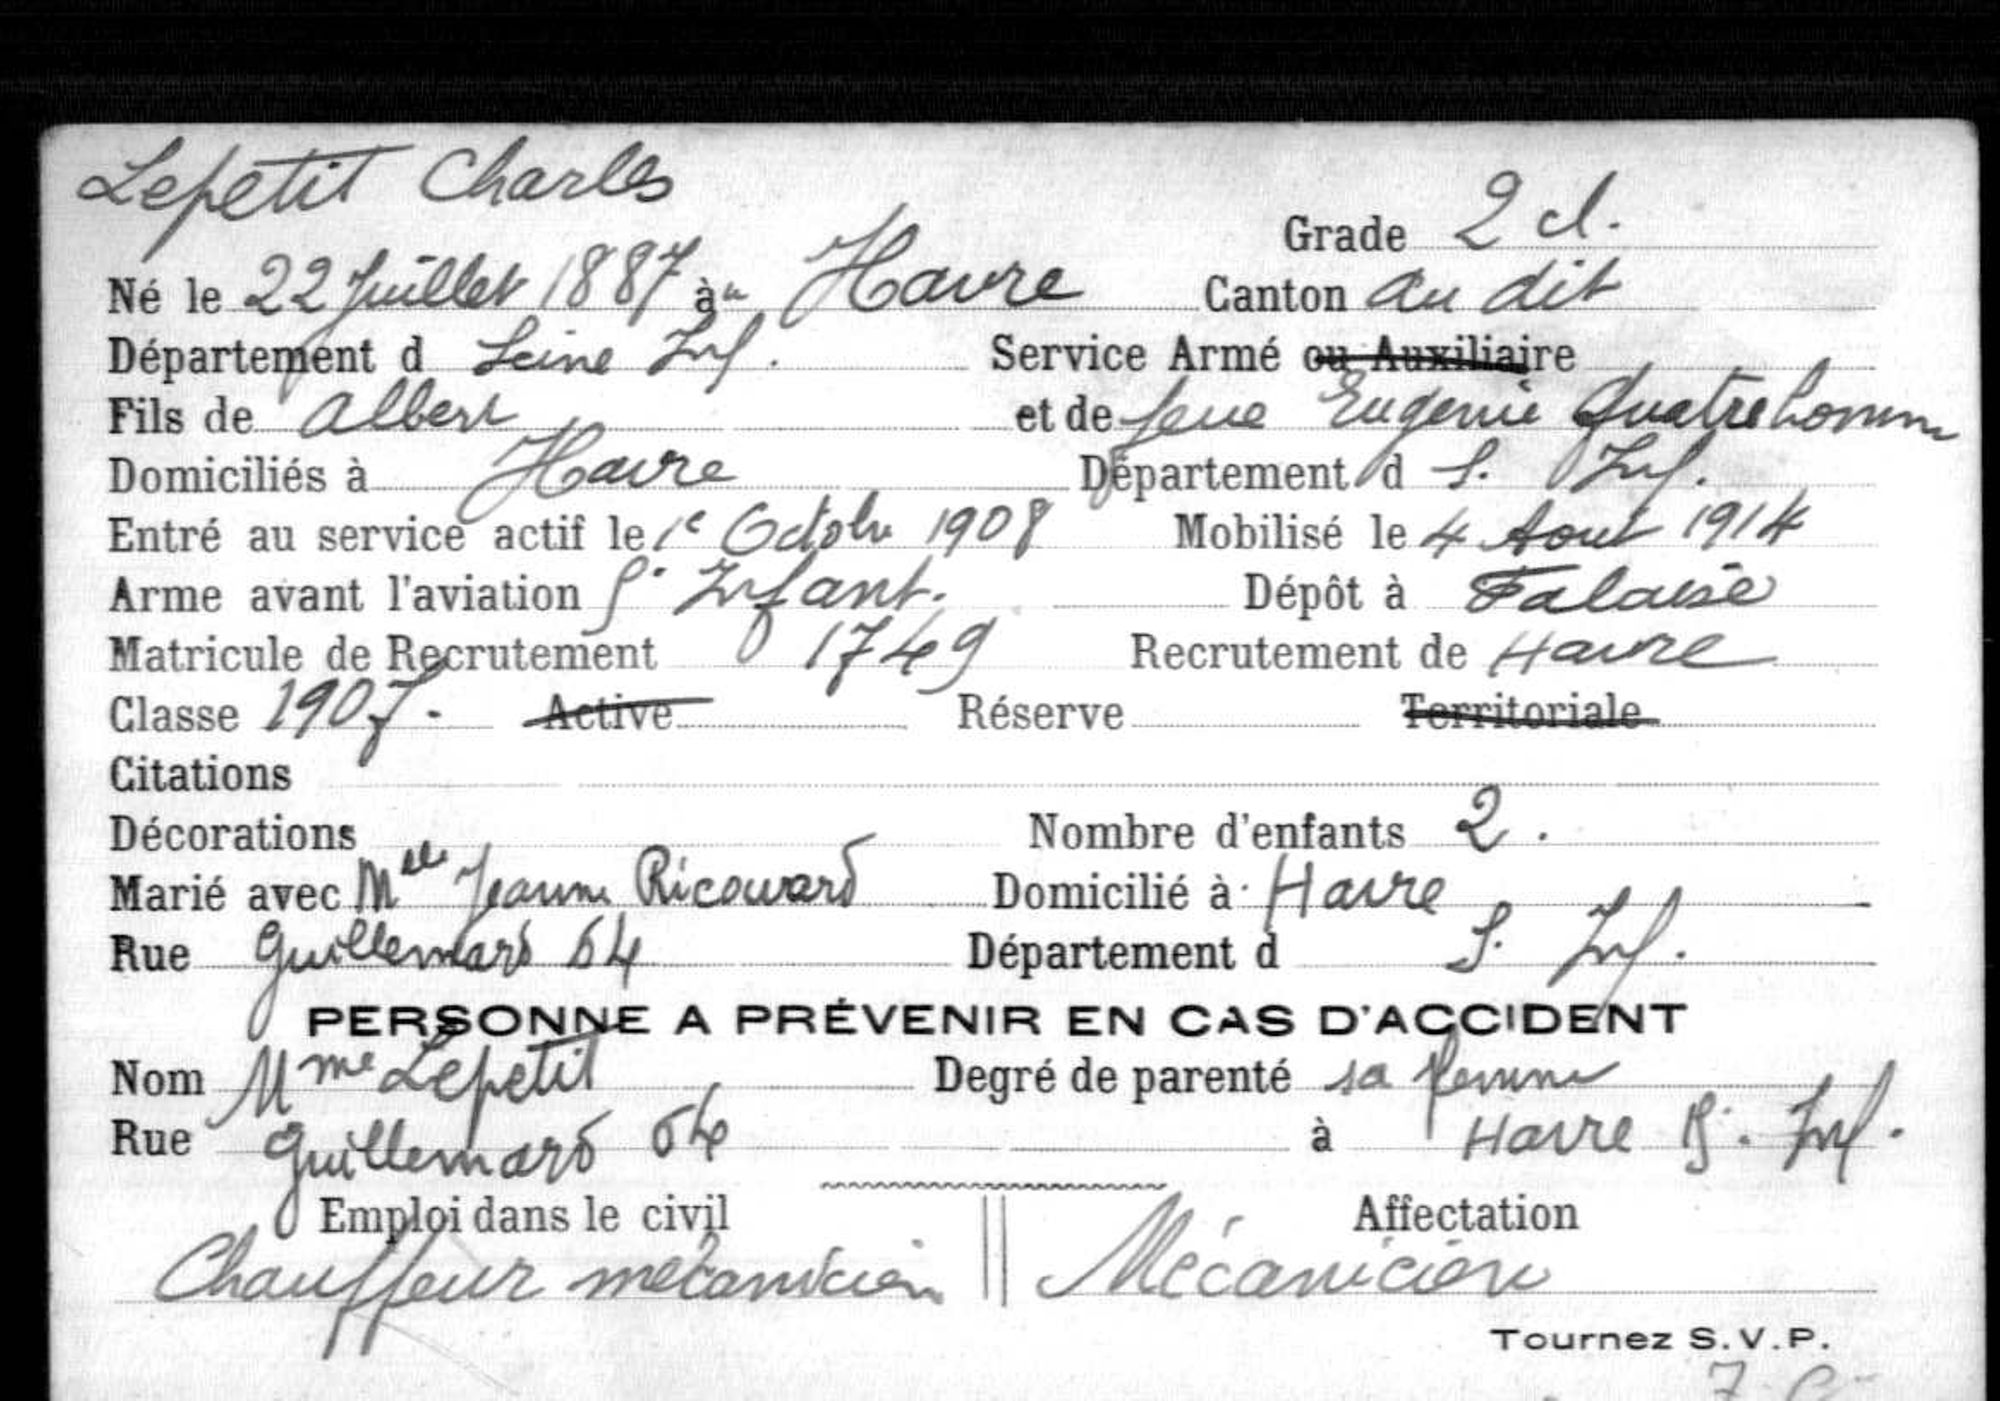 Lepetit Charles
Grade 2 cl.
Né le 22 Juillet 1887 à u Havre Canton au dit
Département d Seine Inf. Service Armé ou Auxiliaire
Fils de Albert et de feue Eugenie Quatrehomme
Domiciliés à Havre Département d S. Inf.
Entré au service actif le 1e Octobre 1908 Mobilisé le 4 Aout 1914
Arme avant l'aviation Infant. Dépôt à Falaise
Matricule de Recrutement 1749 Recrutement de Havre
Classe 1907. Active Réserve Territoriale
Citations
Décorations Nombre d'enfants 2.
Marié avec Mlle Jeanne Ricouard Domicilié à Havre
Rue Guillemard 64 Département d S. Inf.
PERSONNE A PRÉVENIR EN CAS D'ACCIDENT
Nom Mme Lepetit Degré de parenté sa femme
Rue Guillemard 64 à Havre S. Inf.
Emploi dans le civil Affectation
Chauffeur mécanicien Mécanicien
Tournez S.V.P.